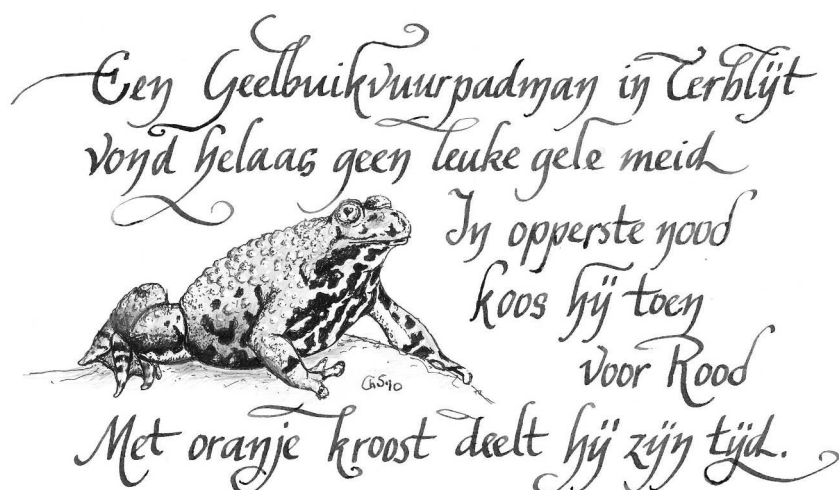 Een Geelbuikvuurpadman in Terblijt
vond helaas geen leuke gele meid
In opperste nood
koos hij toen
voor Rood
Met oranje kroost deelt hij zijn tijd.
ChS'10